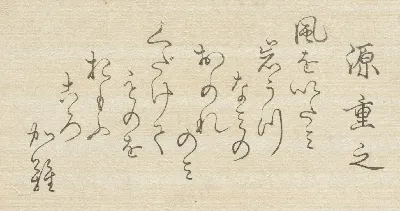 源重之
風をいたミ
岩うつ
なミの
おのれ
のミ
くだけて
ものを
おもふ
ころ
加難